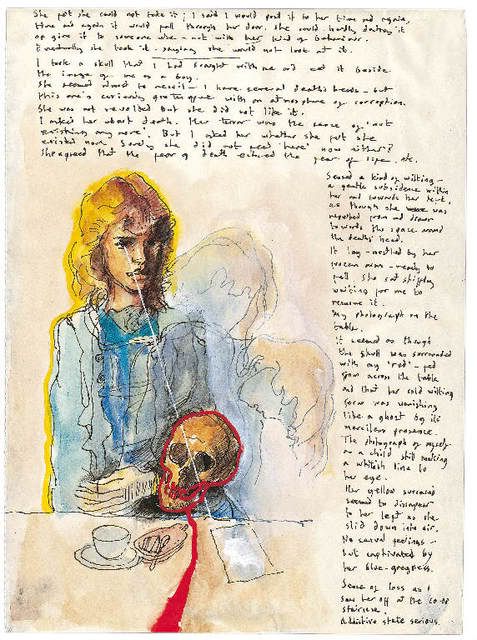 She felt she could not take it; I said I would post it to her time and again,
time and again it would fall through her door. She could hardly destroy it
or give it to someone else – not with her kind of behaviour.
Eventually she took it – saying she would not look at it.
I took a skull that I had brought with me and set it beside
the image of me as a boy.
She seemed to – I have several deaths heads – but
this one's curiously grotesque with an atmosphere of corruption.
She was not revolted but she did not like it.
I asked her about death. Her terror was the sense of 'not
existing any more'. But I asked her whether she felt she
existed now. Surely she did not feel 'here' now either?
She agreed that the fear of death echoed the fear of life, etc.
Sensed a kind of wilting –
a gentle subsidence within
her and towards her left,
as though she was
repelled from and drawn
towards the space around
the deaths' head.
It lay – nestled by her
arms – ready to
fall. She sat
waiting for me to
resume it.
My photograph on the
table.
It seemed as though
the skull was surrounded
with my 'red' – red
flow across the table
and that her cold wilting
form was vanishing
like a ghost by its
merciless presence.
The photograph of myself
as a child still making
a whitish line to
her eye.
Her yellow surround
seemed to disappear
to her left as she
slid down into air.
No carnal feelings –
but captivated by
her blue-greyness.
Sense of loss as I
saw her off at the
staircase.
Additive state serious.